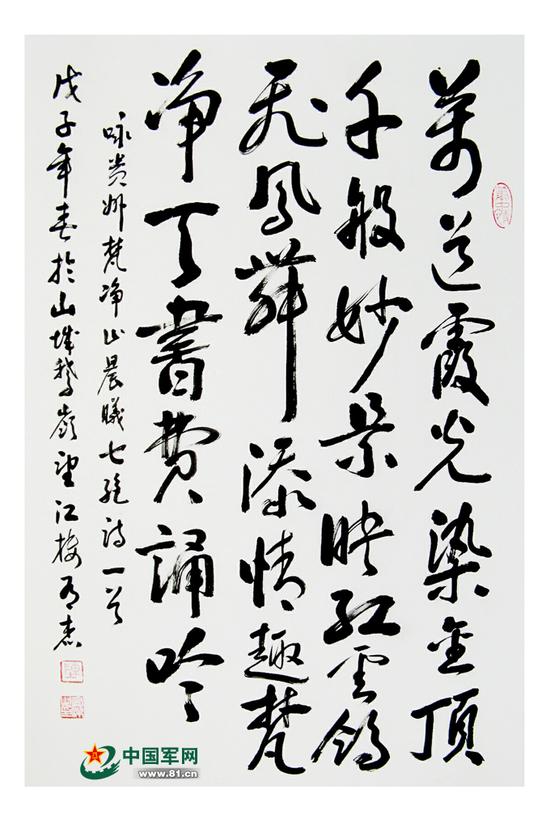 萬道霞光染金頂
千般妙景映红雲鸽
飛鳳舞添情趣梵
净天書費誦吟
咏贵州梵净山晨曦七绝诗一首
戊子年春於山城鵝嶺望江楼
中国军网
www.81.cn